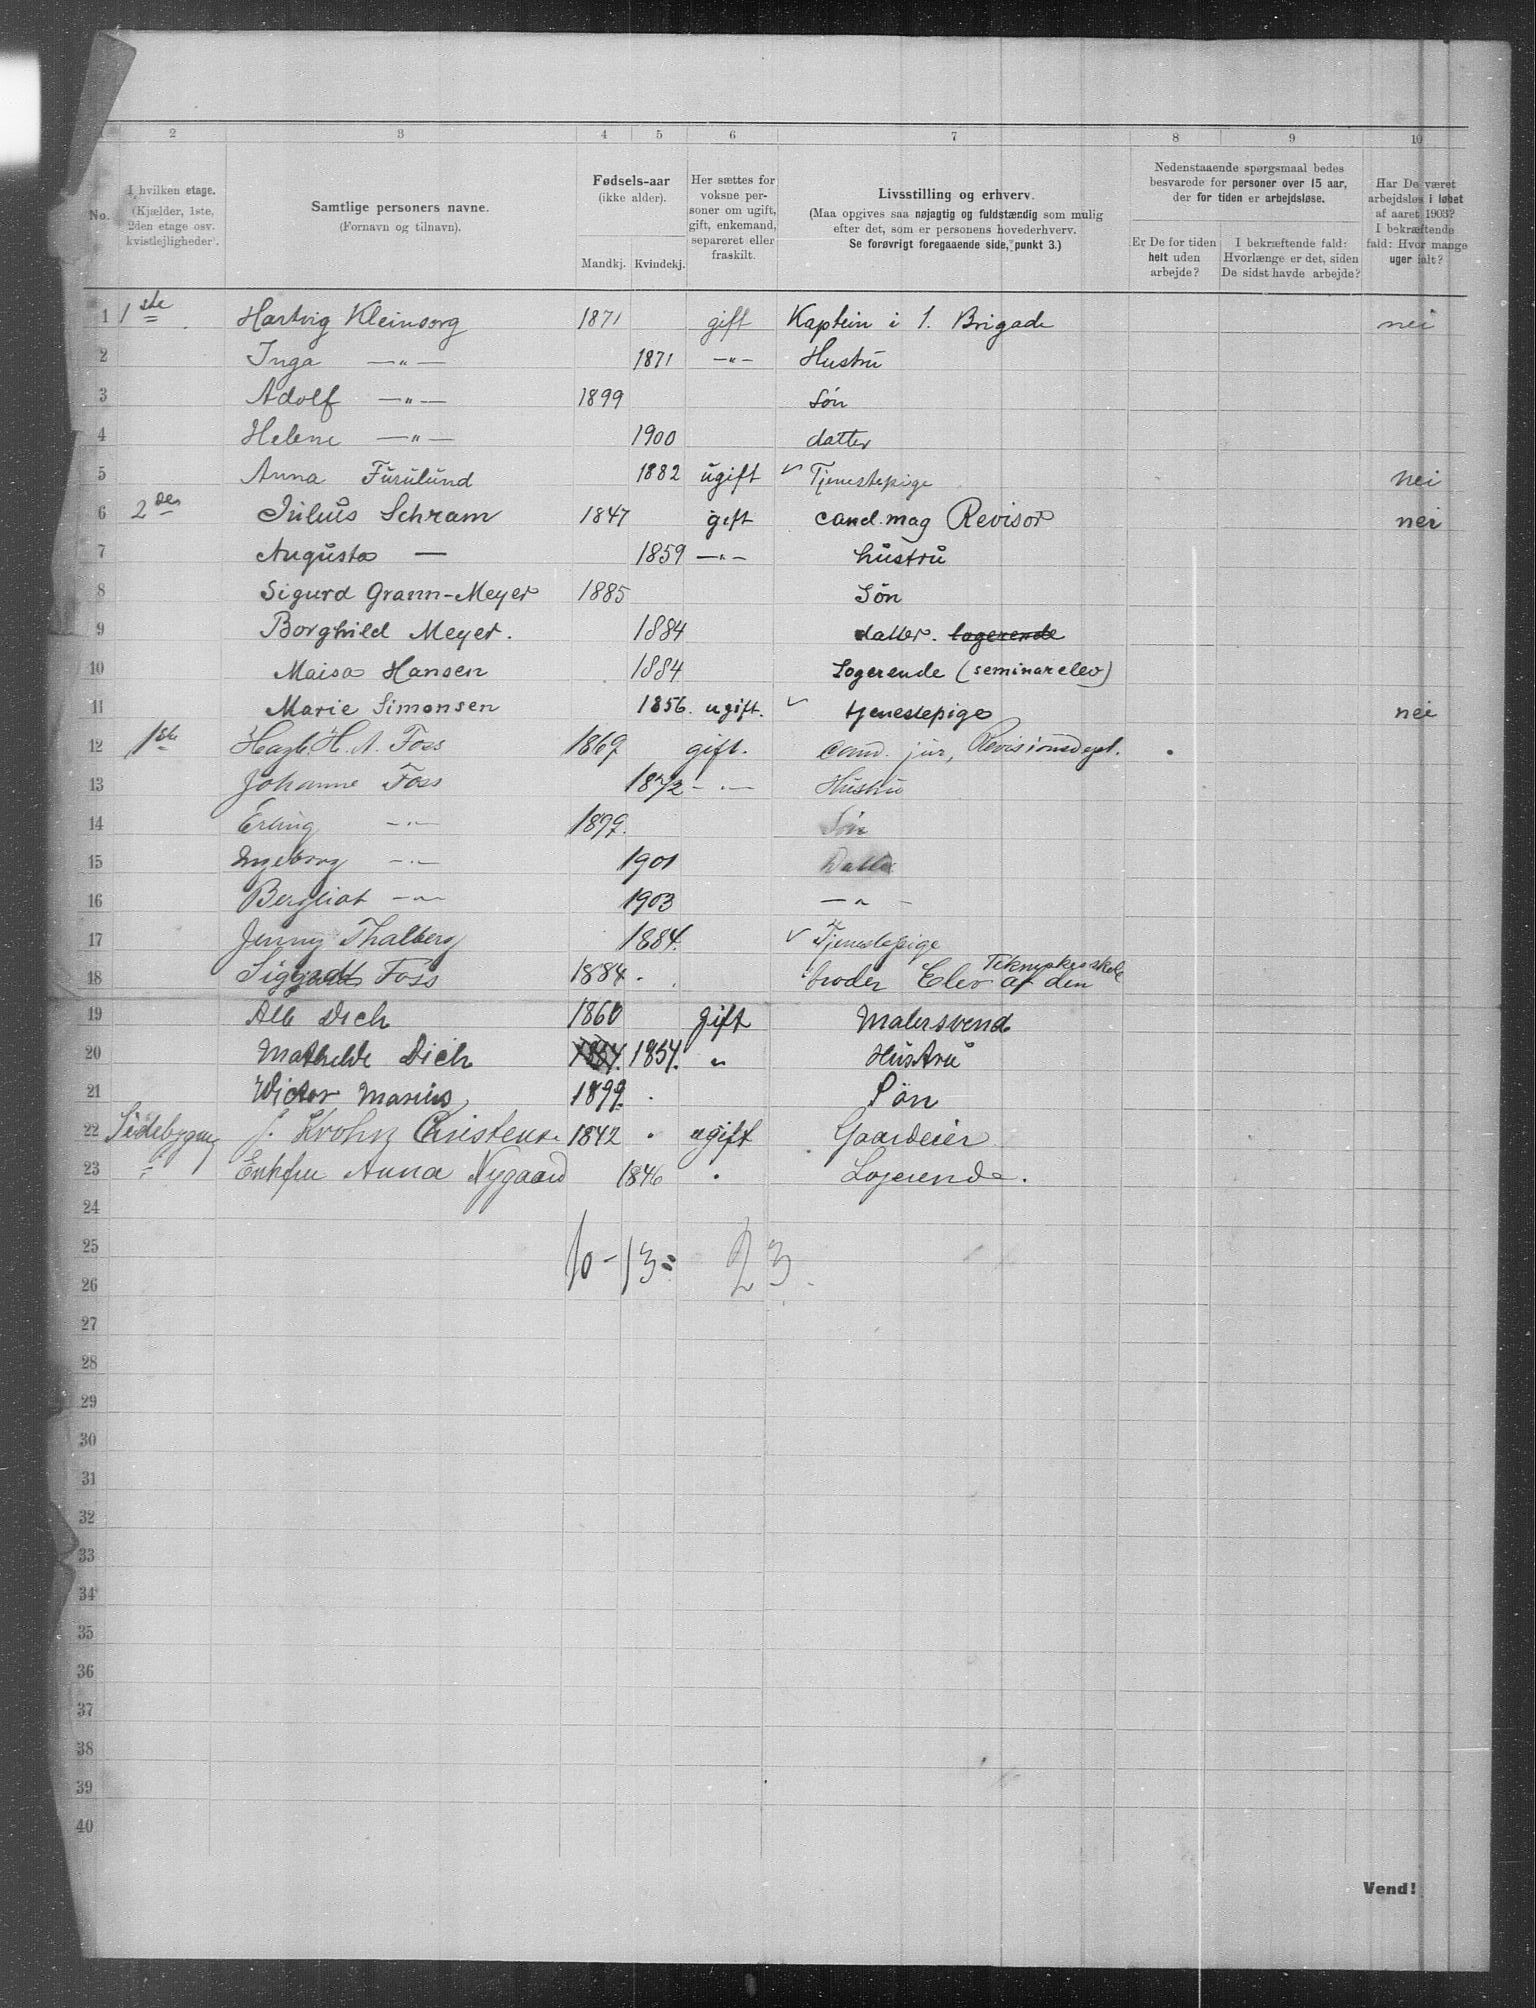 1 2 3 4 5 6 7 8 9 10
No.
I hvilken etage. (Kjælder, 1ste, 2den etage osv. kvistlejligheder).
Samtlige personers navne. (Fornavn og tilnavn).
Fødsels-aar (ikke alder). Mandkj. Kvindekj.
Her sættes for voksne personer om ugift, gift, enkemand, separeret eller fraskilt.
Livsstilling og erhverv. (Maa opgives saa nøjagtig og fuldstændig som mulig efter det, som er personens hovederhverv. Se forøvrigt foregaaende side, punkt 3.)
Nedenstaaende spørgsmaal bedes besvarede for personer over 15 aar, der for tiden er arbejdsløse.
Er De for tiden helt uden arbejde?
I bekræftende fald: Hvorlænge er det, siden De sidst havde arbejde?
Har De været arbejdsløs i løbet af aaret 1903? I bekræftende fald: Hvor mange uger ialt?
1 1ste Hartvig Kleinsorg 1871 gift Kaptein i 1. Brigade nei
2 Inga —"— 1871 —"— Hustru
3 Adolf —"— 1899 Søn
4 Helene —"— 1900 datter
5 Anna Furulund 1882 ugift ✓ Tjenestepige nei
6 2den Julius Schram 1847 gift cand. mag Revisor nei
7 Augusta — 1859 —"— hustru
8 Sigurd Grann-Meyer 1885 Søn
9 Borghild Meyer. 1884 datter. logerende
10 Maisa Hansen 1884 Logerende (seminarelev)
11 Marie Simonsen 1856. ugift. ✓ tjenestepige nei
12 1ste H. A. Foss 1869 gift. cand. jur, Revisionsdept.
13 Johanne Foss 1872 —"— Hustru
14 Erling —"— 1899. Søn
15 Ingeborg —"— 1901 Datter
16 Bergliot —"— 1903 —"—
17 Jenny Thalberg 1884. ✓ Tjenestepige
18 Foss 1884 broder Elev af den Tekniske skole
19 Alb Dich 1860 gift Malersvend
20 Mathilde Dich 1854. 1854. " Hustru
21 Wictor Marius 1899. Søn
22 Sidebygng J. Krohn Christense 1842 ugift Gaardeier
23 " Enkefru Anna Nygaard 1846 Logerende.
24
25
10 - 13 = 23.
26
27
28
29
30
31
32
33
34
35
36
37
38
39
40
Vend!